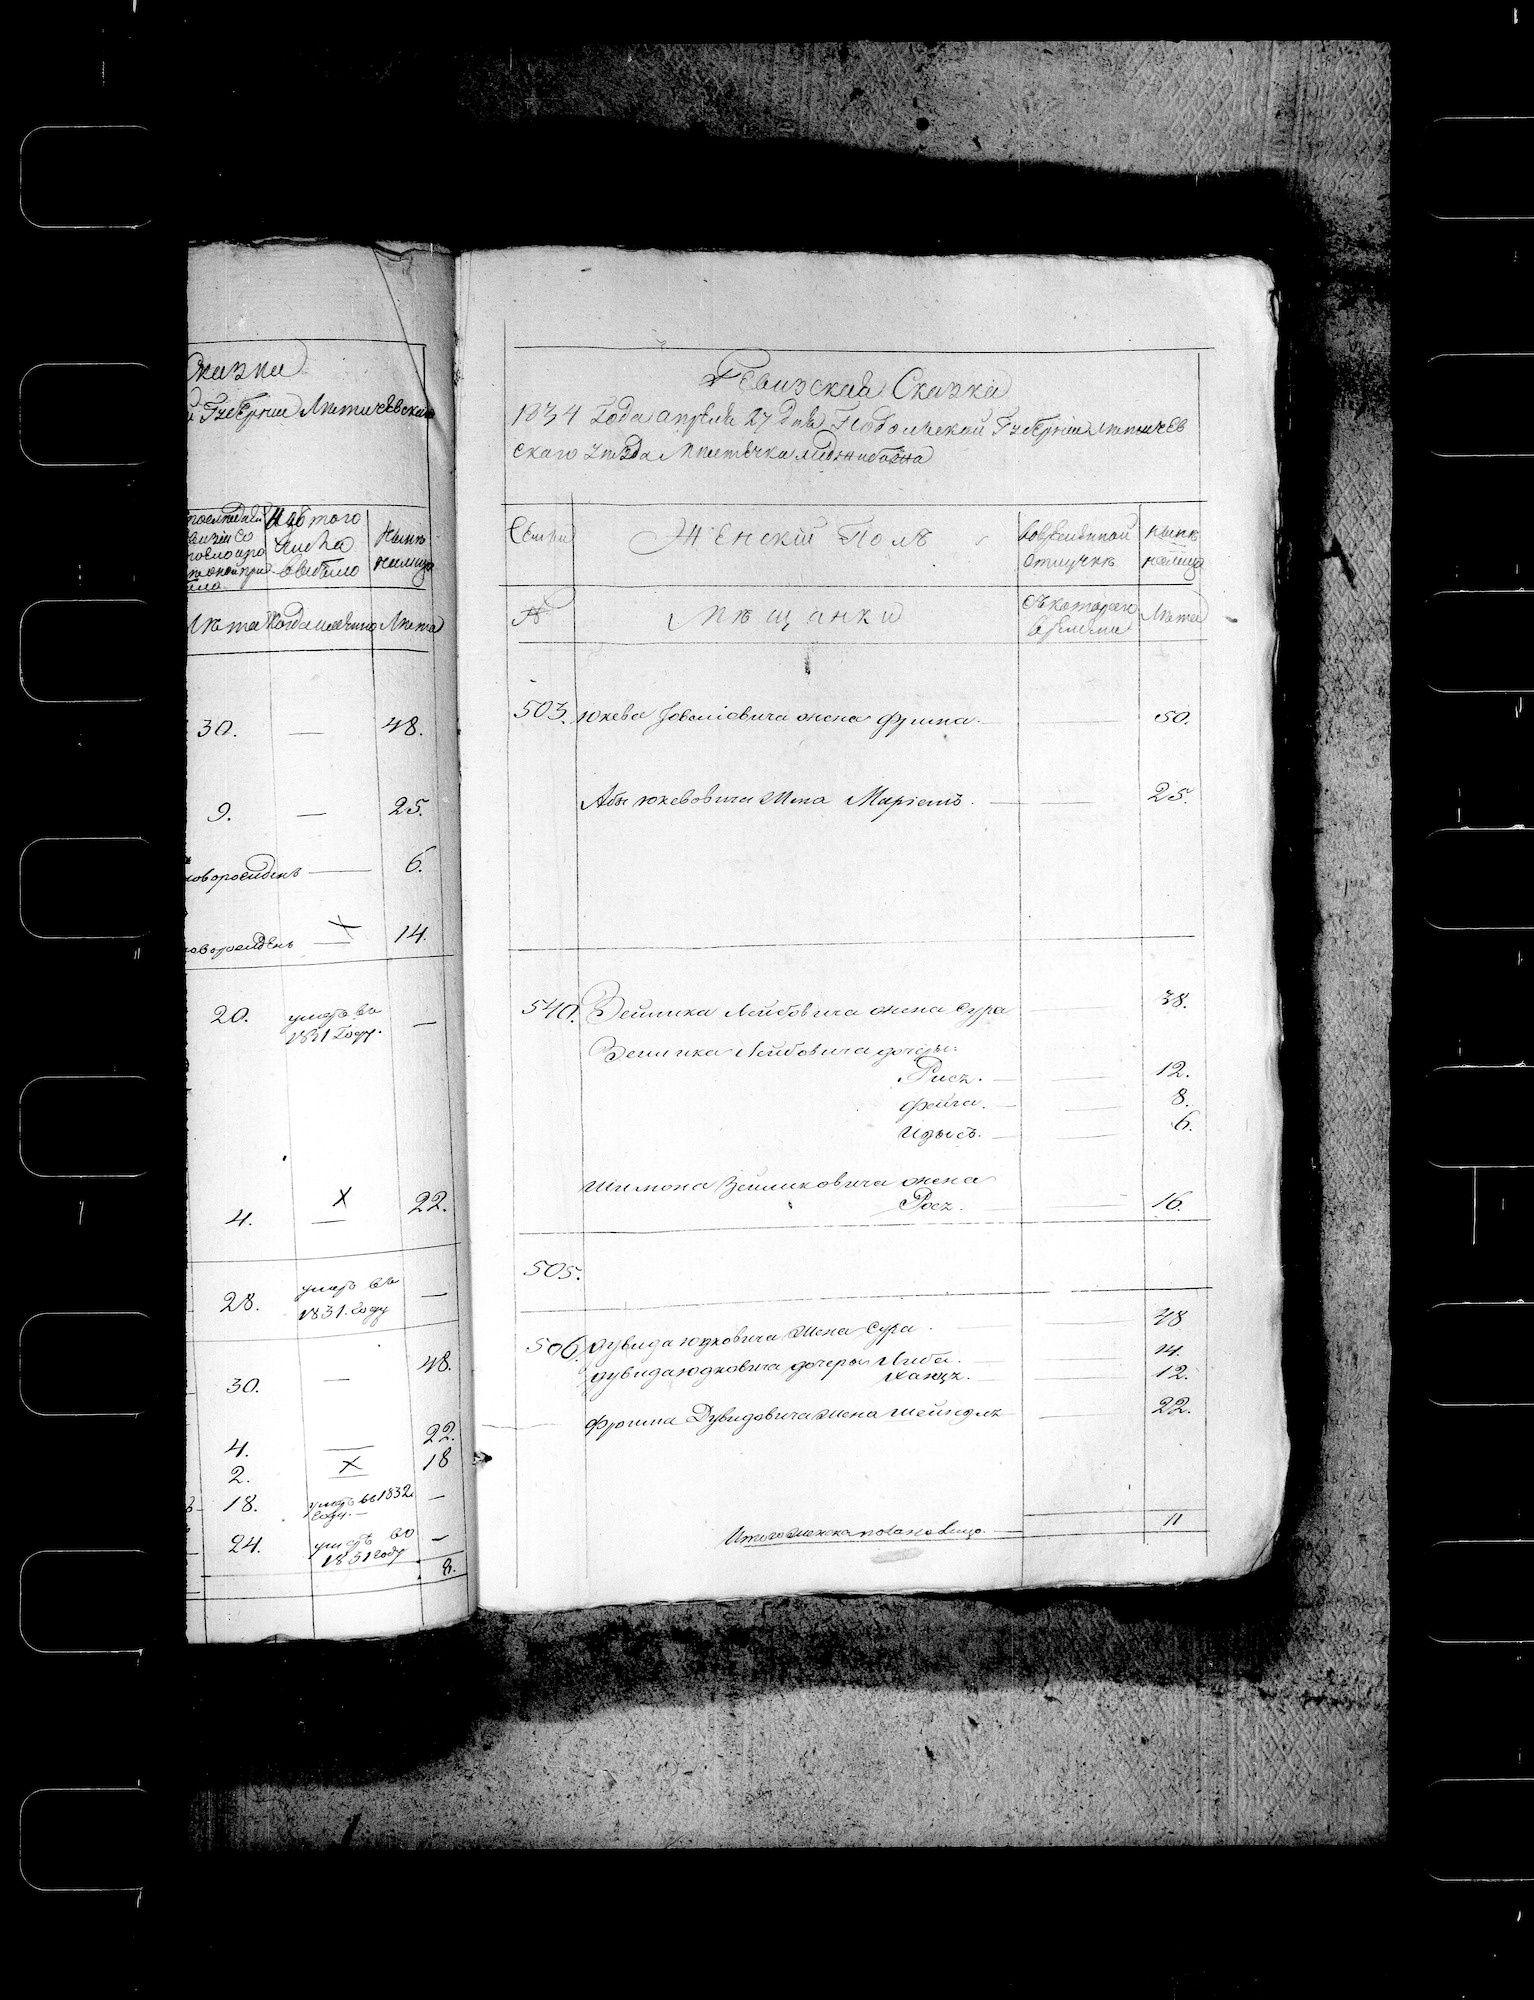 Сказка
Губернии Летичевской
Изъ того
числа
выбыло
Нынѣ
налицо
Лѣта Когда именно Лѣта
30. — 48.
9. — 25.
новорожденъ — 6.
новорожденъ X — 14.
20. умеръ въ
1831 Году. —
4. X — 22.
28. умеръ въ
1831. Году —
30. — 48.
4. — 22.
2. X — 18
18. умеръ въ 1832
Году. —
24. умеръ въ
1831 Году —
8.
Ревизская Сказка
1834 Года апреля 27 дня Подольской Губернии Летичев
скаго уезда местечка Меджибожа
Семьи
Женскій Полъ
Вовременной
отлучке
Нынѣ
налицо
№
Мѣщанки
Съкотораго
времени
Лѣта
503. Юкева жена Фрима. — 50.
Абы Юкевовича жена Маріемъ. — 25.
540. Зейлика Лейбовича жена Сура — 38.
Зейлика Лейбовича дочеры:
Рися. — 12.
Фейга. — 8.
6.
Шимона Зейликовича жена
Рося. — 16.
505.
506. Дувида Юдковича жена Сура. — 48
Дувида Юдковича дочеры Либа. — 14.
Ханця. — 12.
Фроима Дувидовича жена Шейндля — 22.
Итого женска пола налицо. — 11